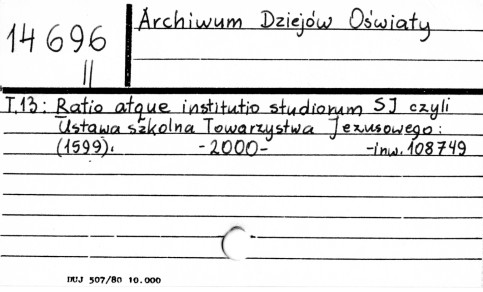 14696
II
Archiwum Dziejów Oświaty
T.13: Ratio atque institutio studiorum SJ czyli
Ustawa szkolna Towarzystwa Jezusowego:
(1599). -2000- -inw. 108749
DUJ 507/80 10.000